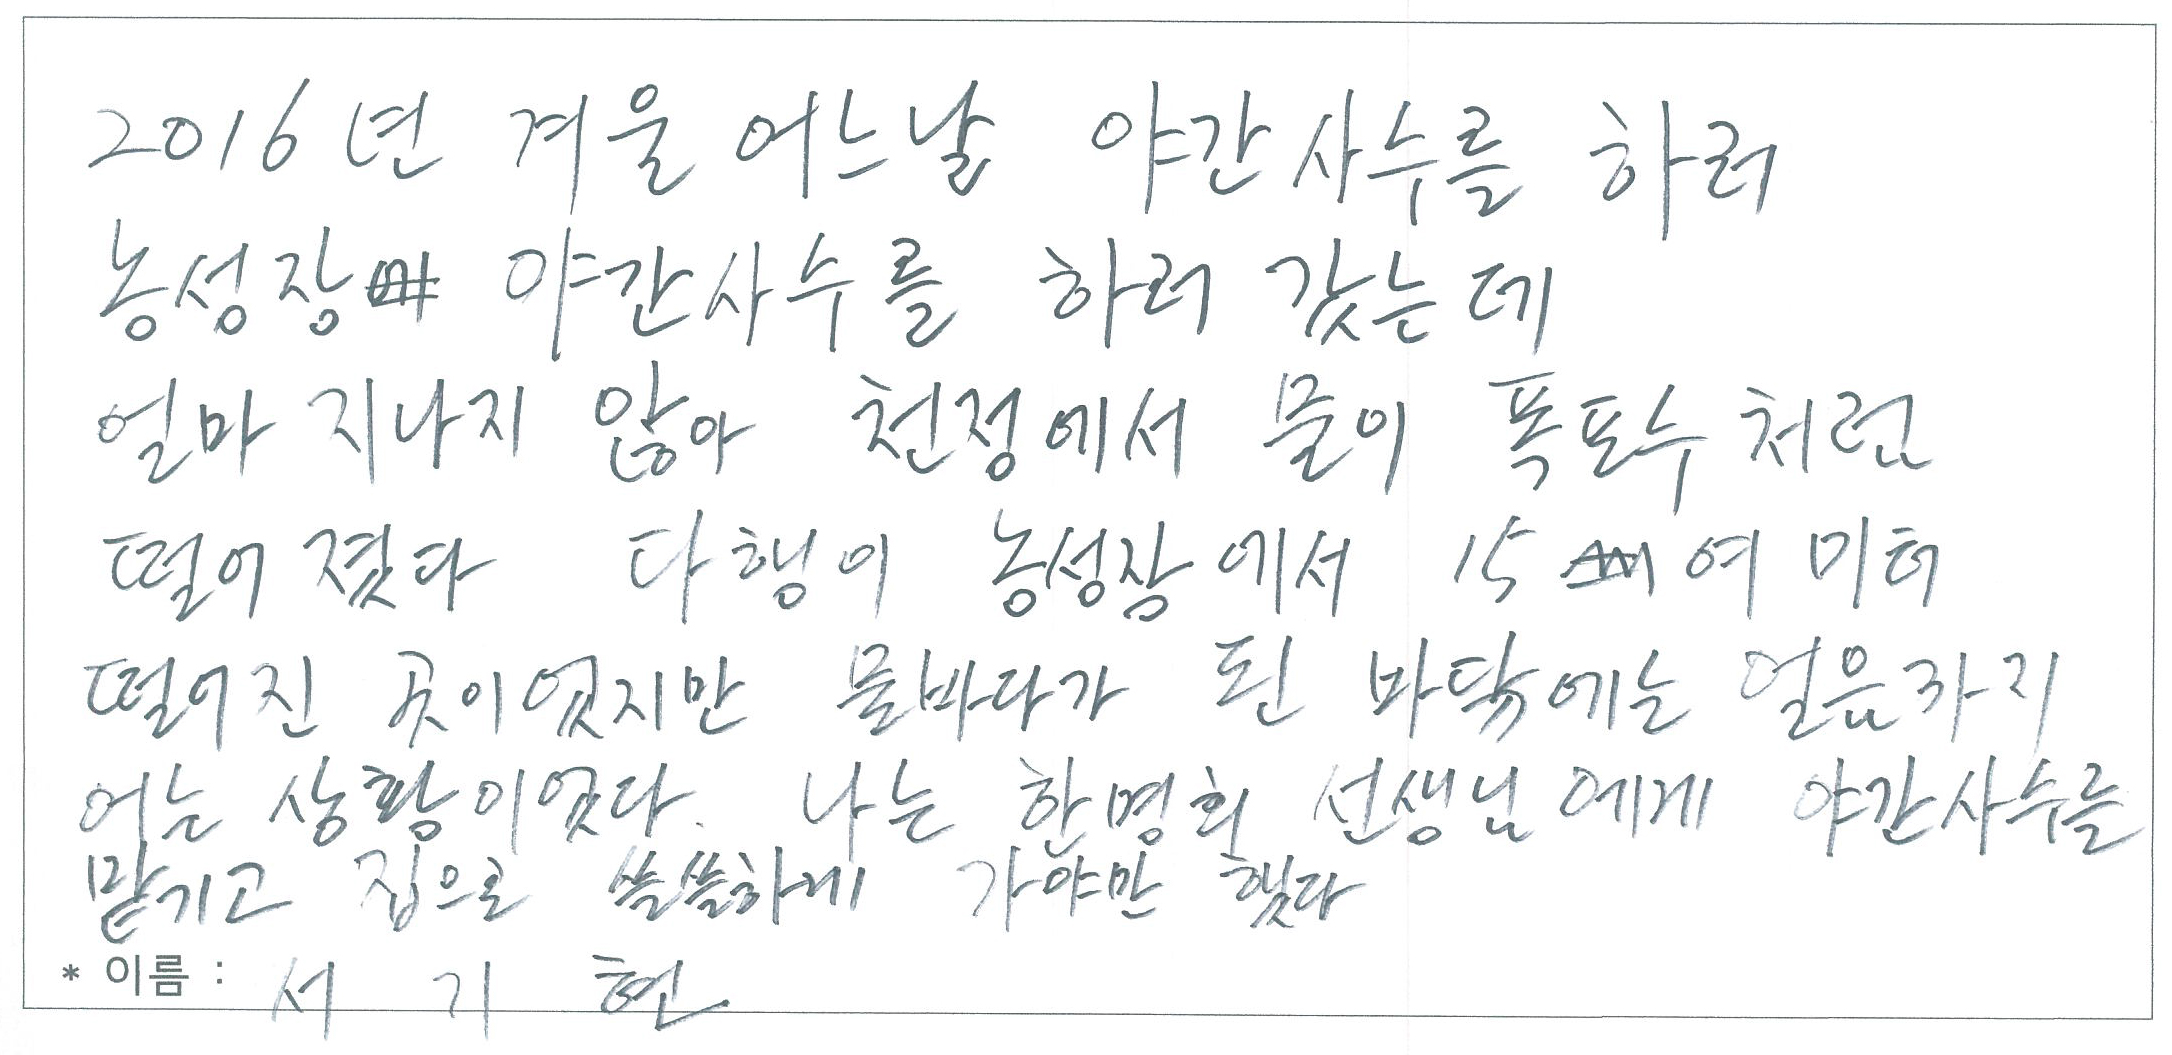 2016년 겨울 어느날 야간사수를 하러
농성장 야간사수를 하러 갔는데
얼마 지나지 않아 천정에서 물이 폭포수처럼
떨어졌다 다행이 농성장에서 15여 미터
떨어진 곳이였지만 물바다가 된 바닥에는 얼음까지
어는 상황이였다. 나는 한명희 선생님에게 야간사수를
맡기고 집으로 쓸쓸하게 가야만 했다
* 이름 : 서 기 현